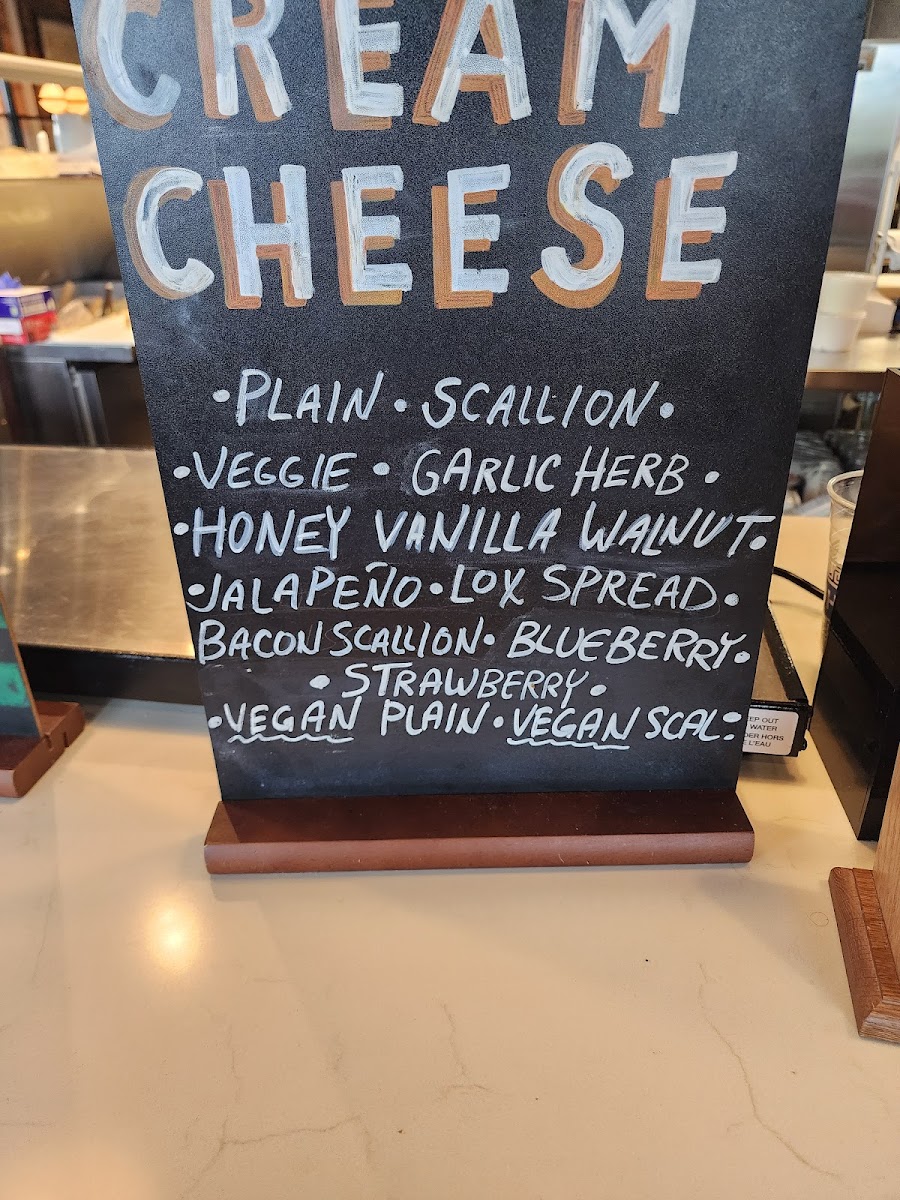 CREAM
CHEESE
•PLAIN • SCALLION•
•VEGGIE • GARLIC HERB •
•HONEY VANILLA WALNUT•
•JALAPEÑO•LOX SPREAD•
BACON SCALLION• BLUEBERRY•
• STRAWBERRY•
•VEGAN PLAIN•VEGAN SCAL•
EP OUT
WATER
DER HORS
L'EAU